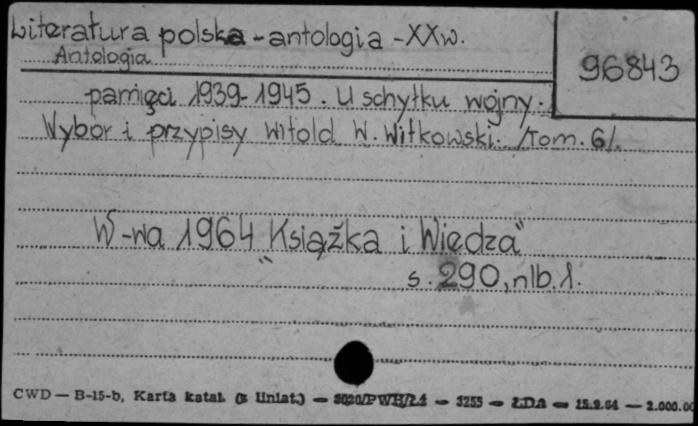 Literatura polska - antologia - XXw.
96843
Antologia
pamięci 1939-1945. U schyłku wojny.
Wybór i przypisy Witold W. Witkowski. /Tom. 6/.
W-wa 1964 "Książka i Wiedza"
s. 290, nlb. 1.
CWD — B-15-b, Karta katal. (z liniat.) — PWH/24 — 3255 — ŁDA — 15.2.64 — 2.000.00